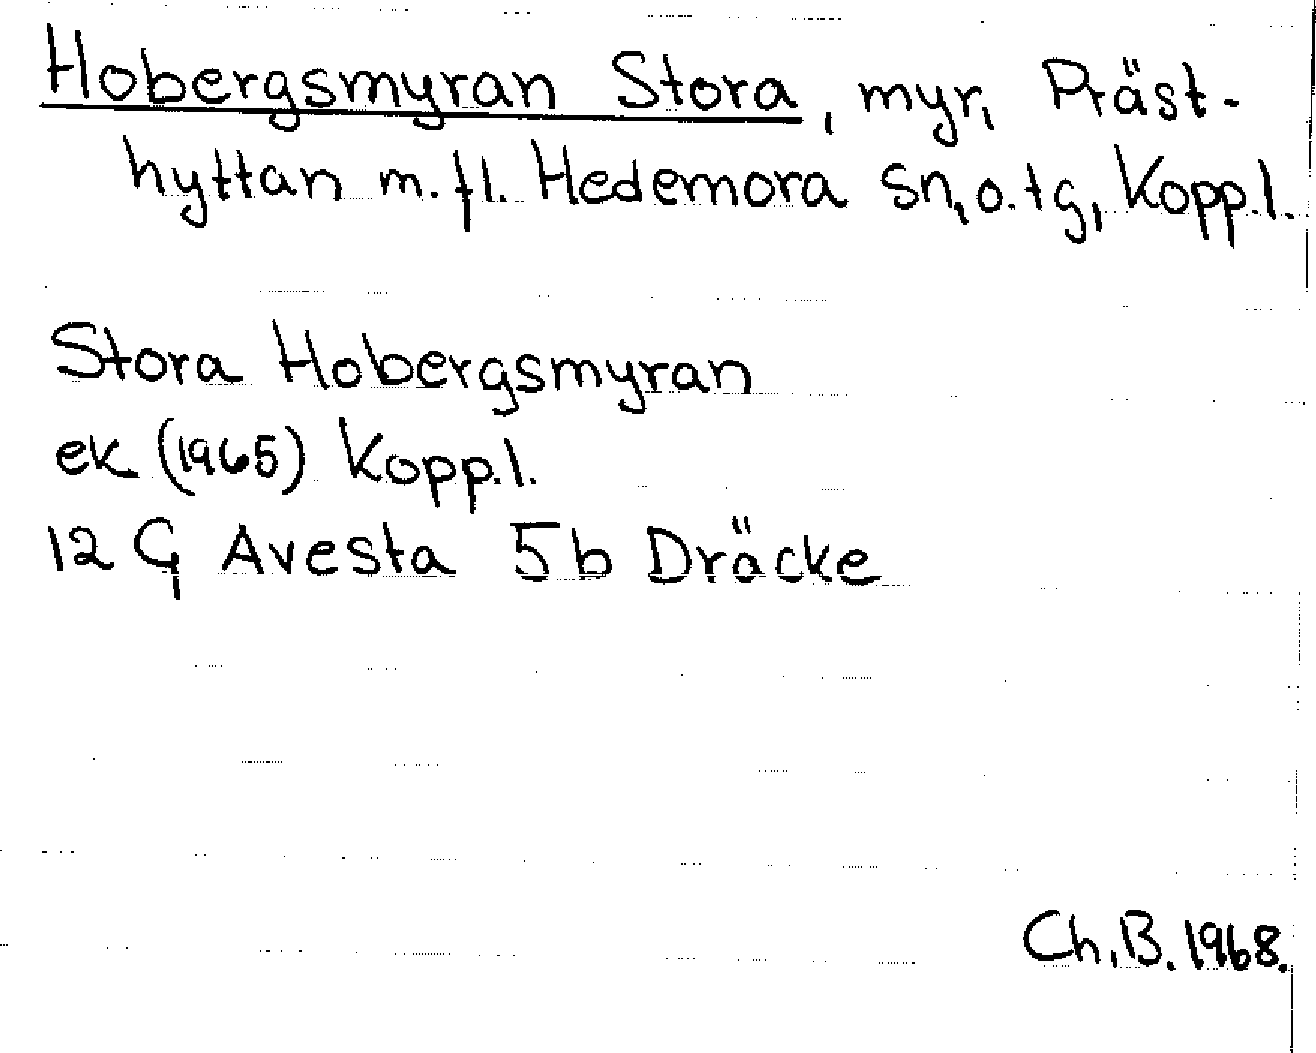 Hobergsmyran Stora, myr, Präst-
hyttan m.fl. Hedemora sn, o. tg, Kopp.l.
Stora Hobergsmyran
ek (1965) Kopp.l.
12 G Avesta 5b Dräcke
Ch.B. 1968.